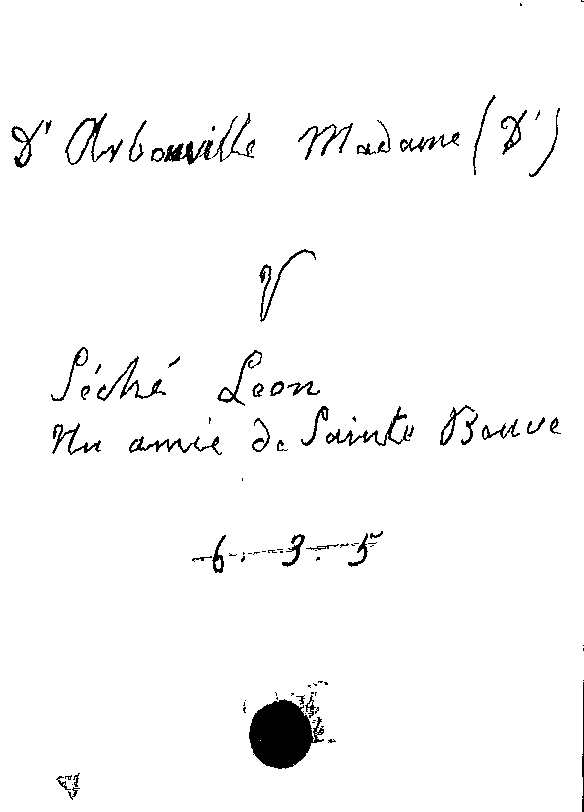 D' Arbouville Madame (D')
V
Séché Leon
Un amie de Sainte Beuve
6. 3. 5